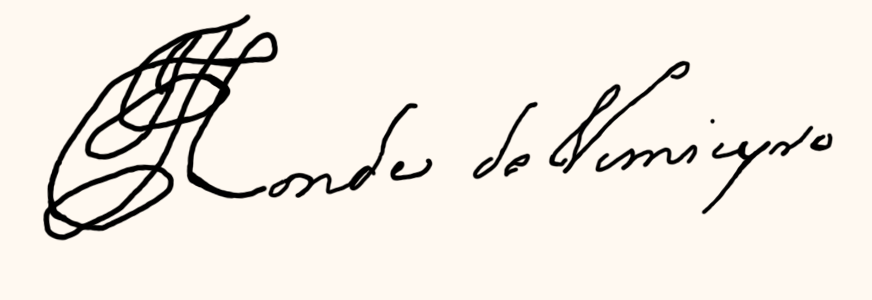 Conde de Vimieyro